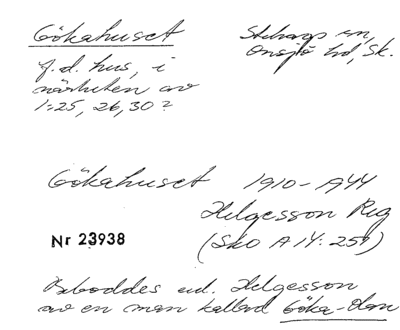 Gökahuset
Stehags sn,
Onsjö hd, Sk.
f.d. hus, i
närheten av
1:25, 26, 30?
Gökahuset 1910-1944
Helgesson Reg
Nr 23938
(Sko A 14: 259)
Beboddes enl. Helgesson
av en man kallad Göka-Olan